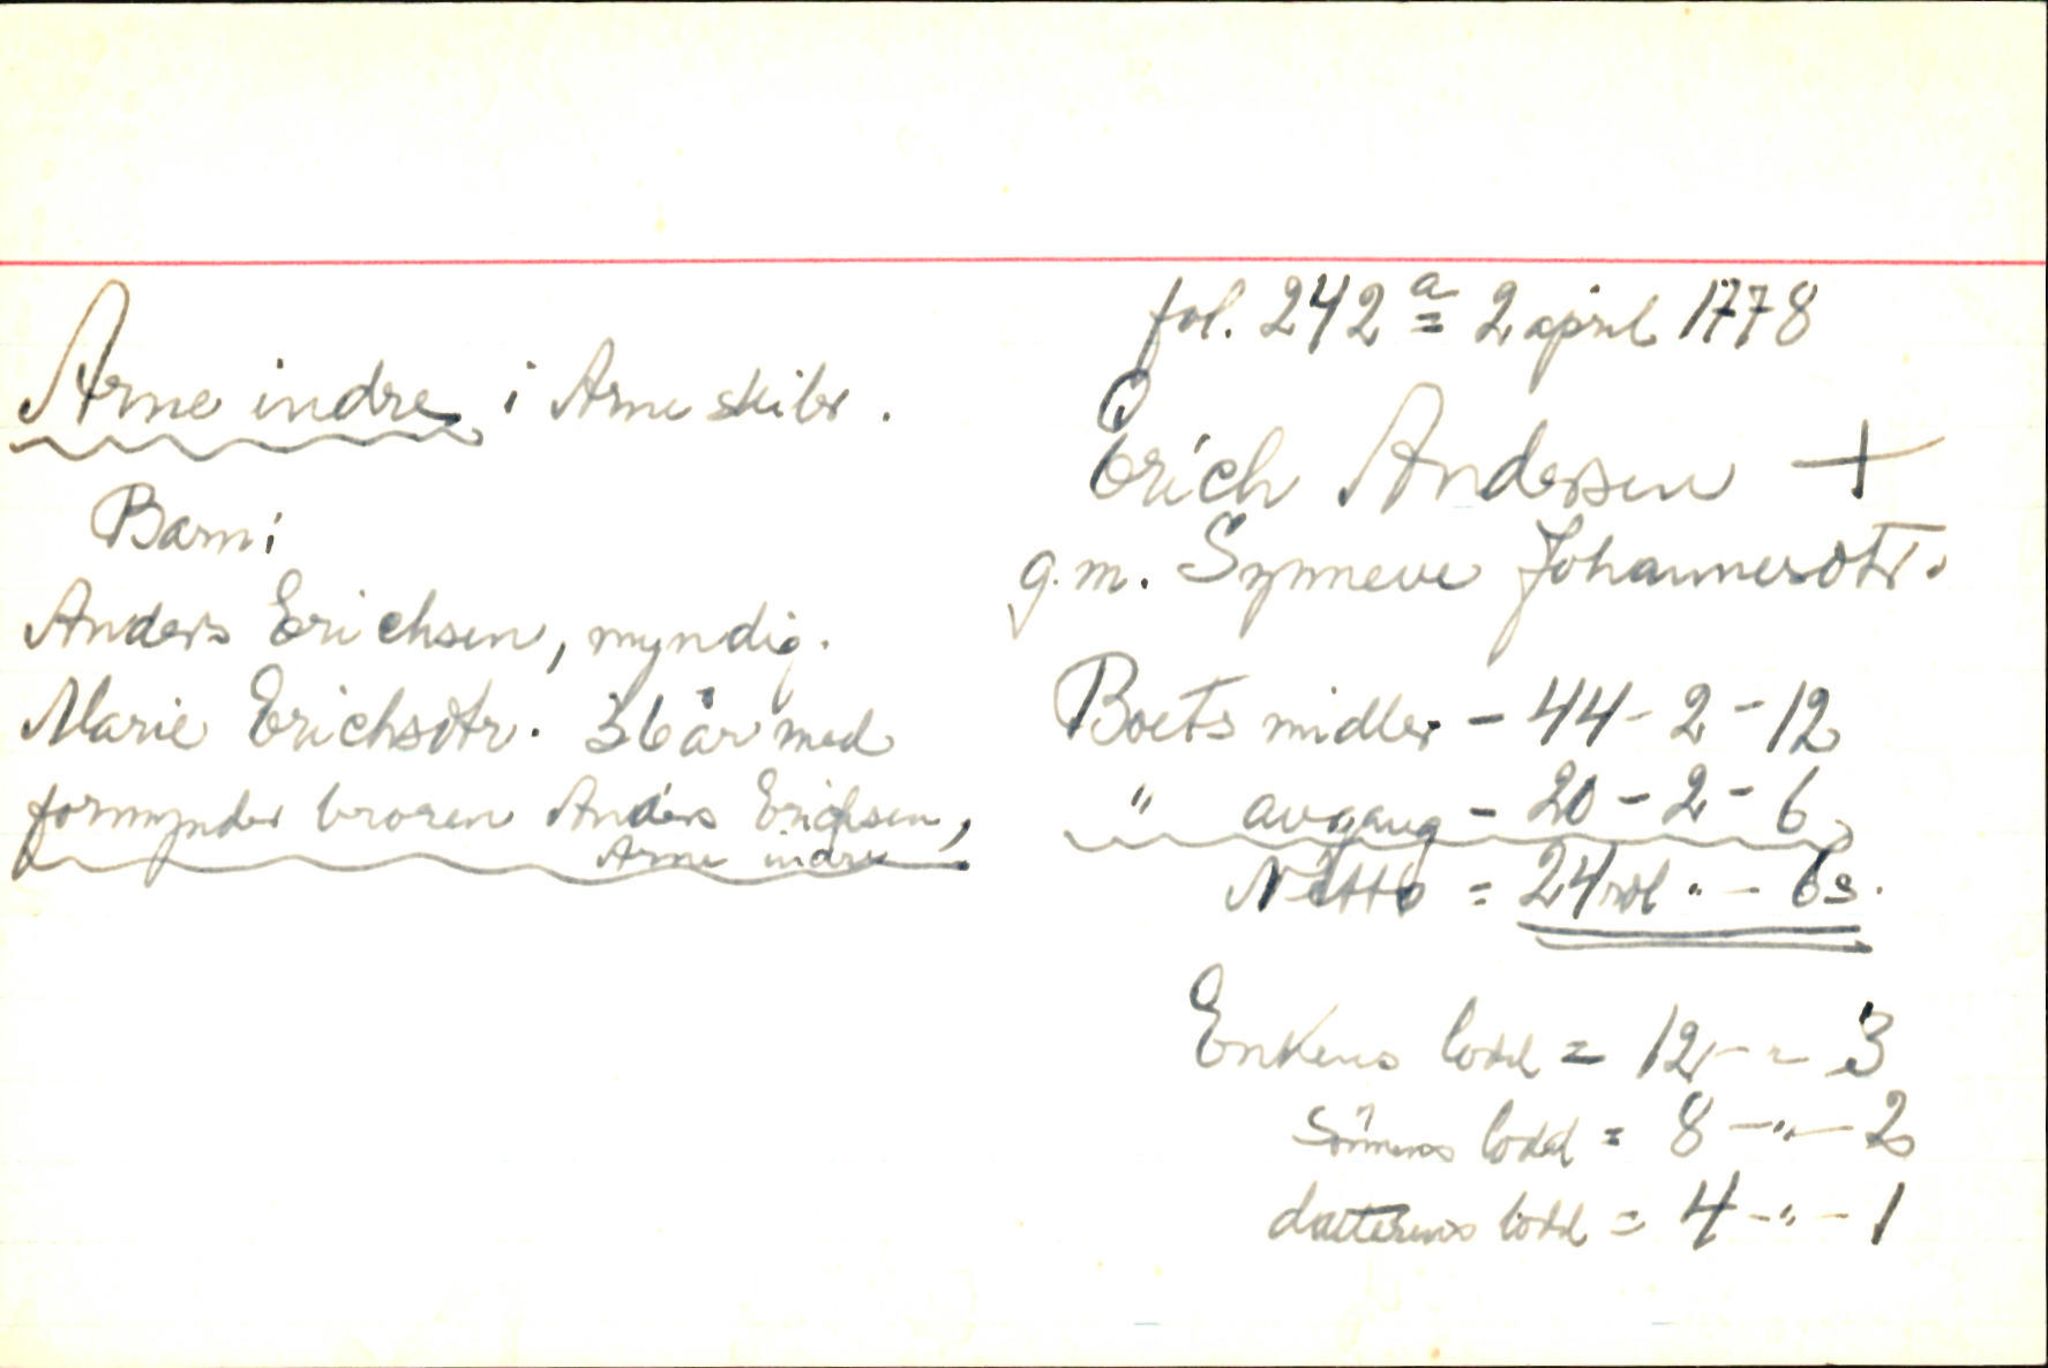 Arne indre i Arne skibr.
Barn:
Anders Erichsen, myndig.
Marie Erichsdtr. 36 år med
formynder broren Anders Erichsen,
Arne indre
fol. 242 a = 2 april 1778
Erich Andersen +
g.m. Synneve Johannesdtr.
Boets midler - 44 - 2 - 12
" avgang - 20 - 2 - 6
Netto = 24 rdl " - 6 s.
Enkens lodd = 12 - " - 3
Sönnens lodd = 8 - " - 2
datterens lodd = 4 - " - 1